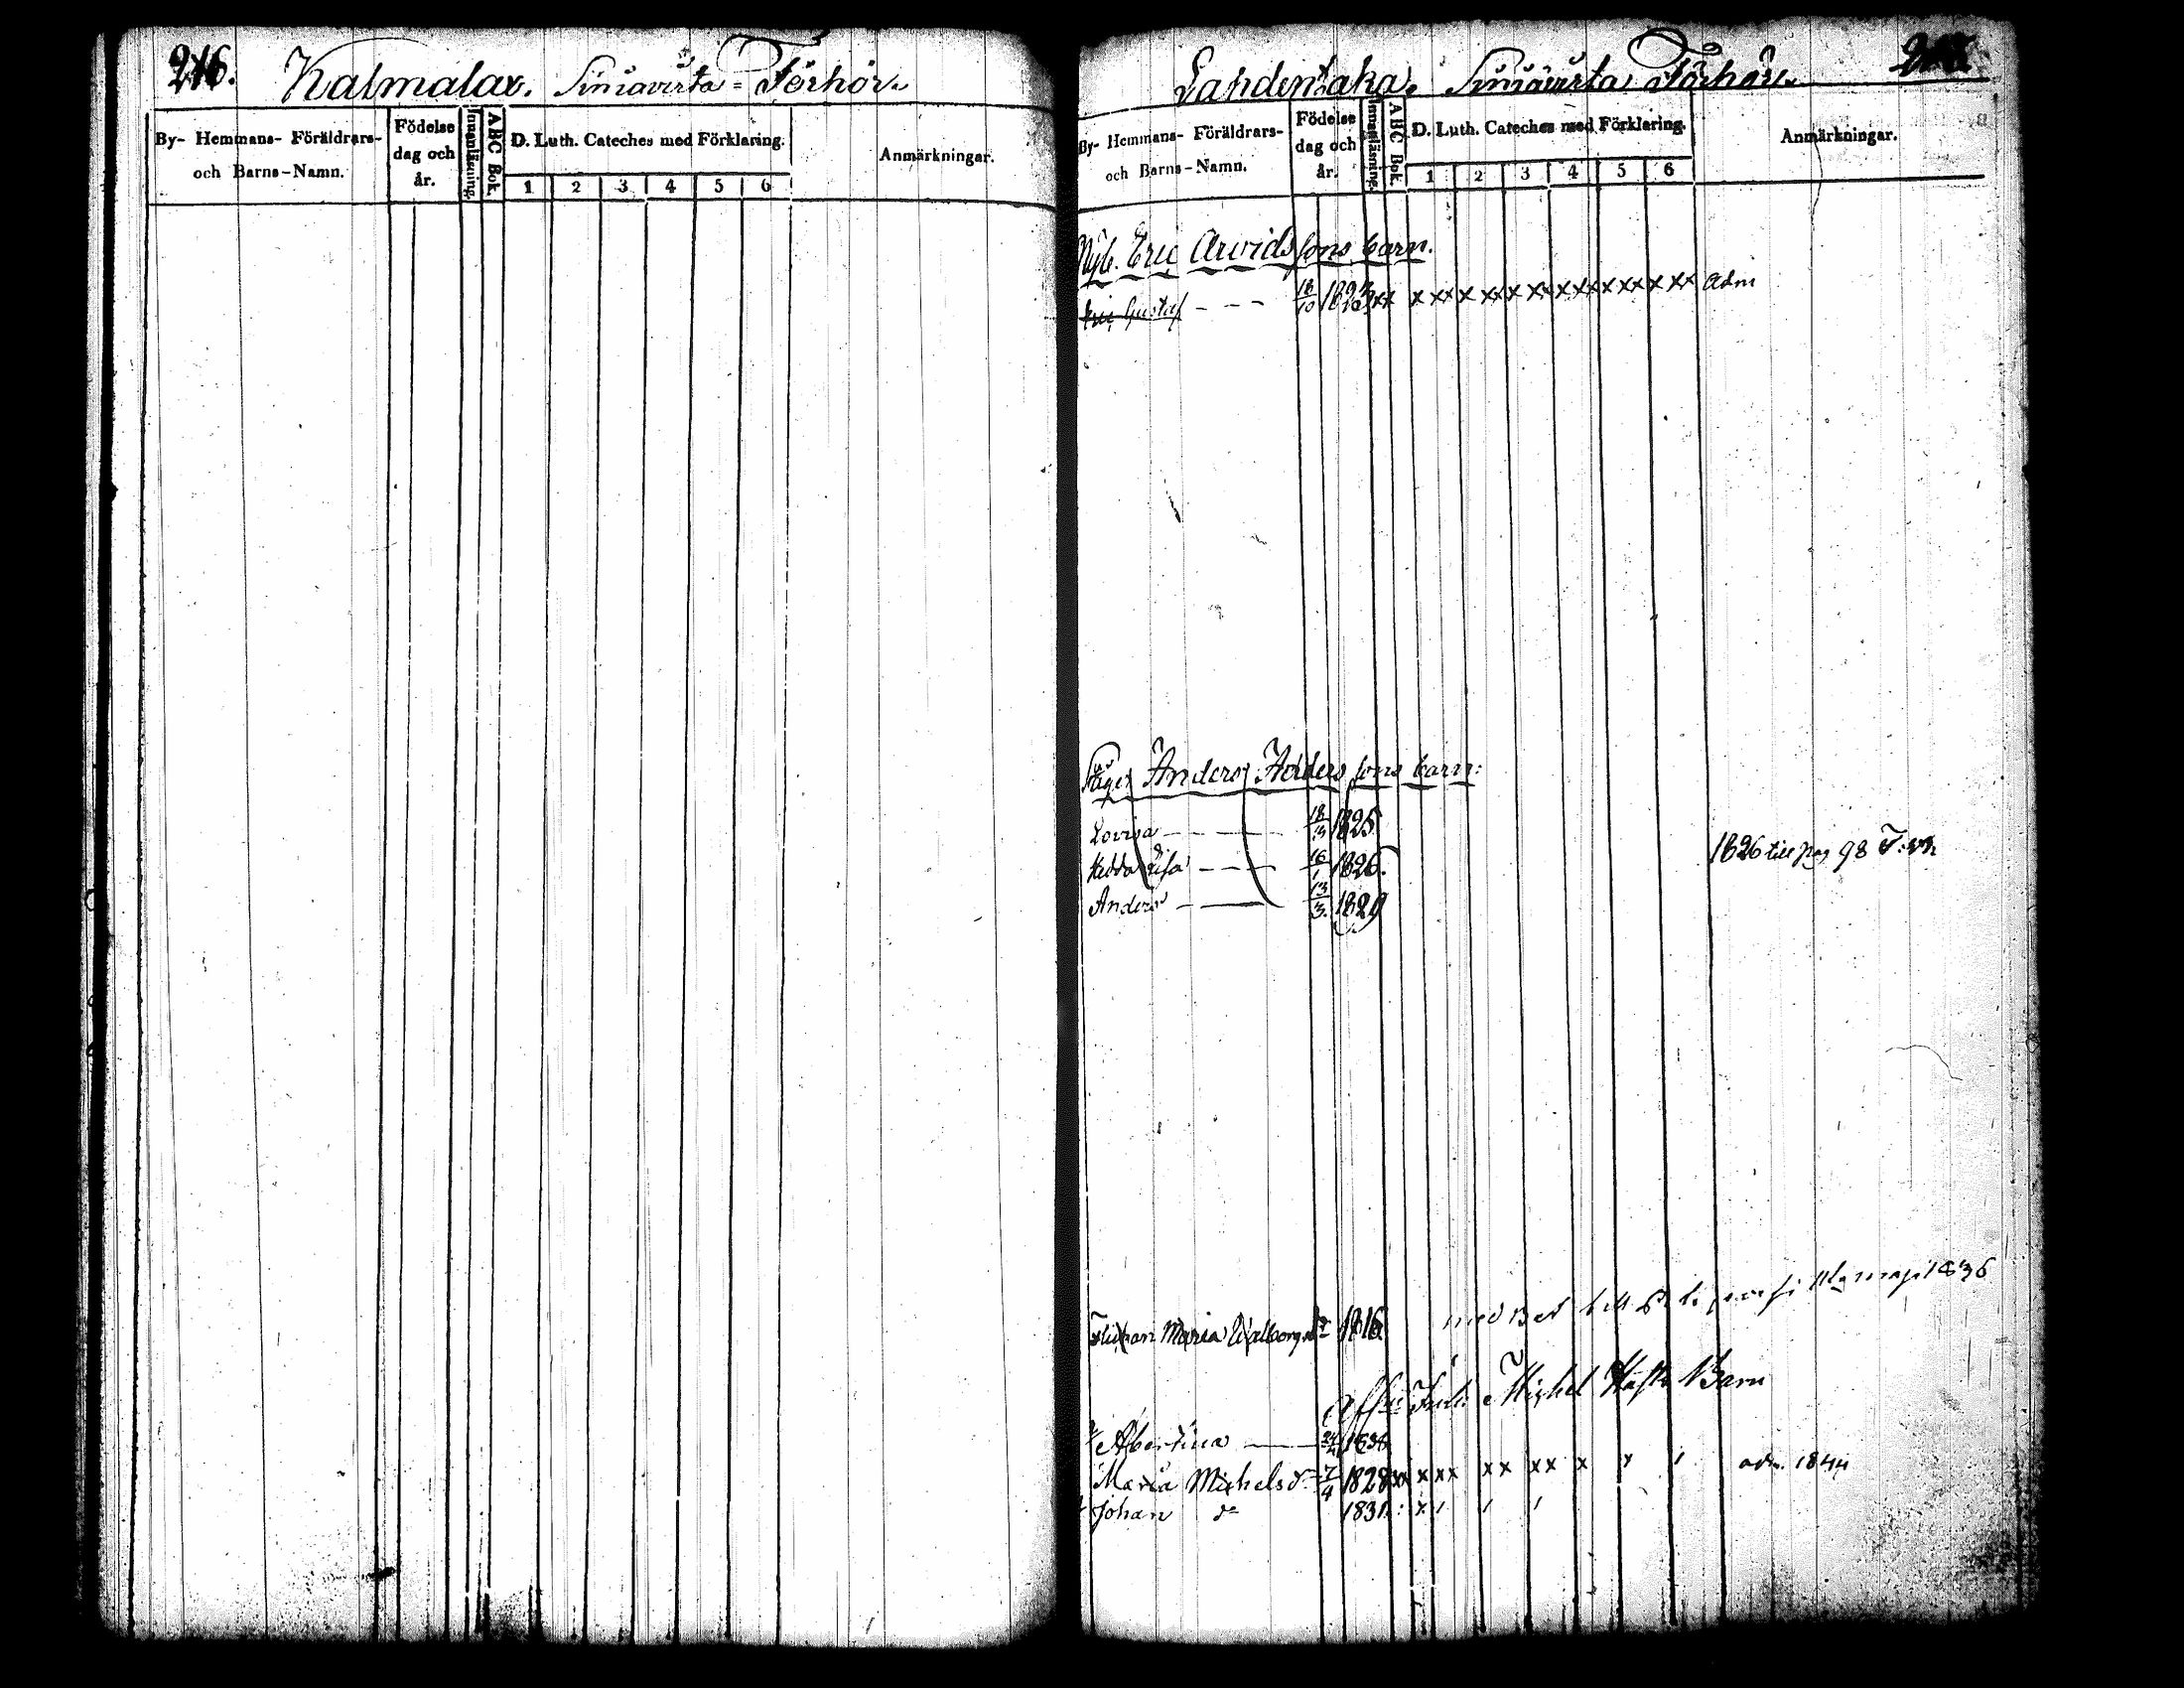 216. Kalmalax. Siniavirta = Förhör.
By- Hemmans- Föräldrars-
och Barns-Namn.
Födelse
dag och
år.
Innanläsning.
ABC Bok.
D. Luth. Cateches med Förklaring.
1 2 3 4 5 6
Anmärkningar.
Lahdentaka. Siniavirta Förhör.
By- Hemmans- Föräldrars-
och Barns-Namn.
Födelse
dag och
år.
Innanläsning.
ABC Bok.
D. Luth. Cateches med Förklaring.
1 2 3 4 5 6
Anmärkningar.
Nyb. Eric Arvidssons barn.
Eric Gustaf - - - 18/10 1823 xx x xx x xx x xx x xx x xx x xx adm
Anders Anderssons barn:
Lovisa - - - 18/3 1825
Hedda Lisa - - - 16/1 1826. 1826 till pag 98
Anders - 13/3. 1829
Maria Walborg 1816 1836
Michel Barn
Albertina
Maria Michelsd. 7/4 1828 xx x xx xx xx x x / adm. 1844
Johan 1831. x / / /